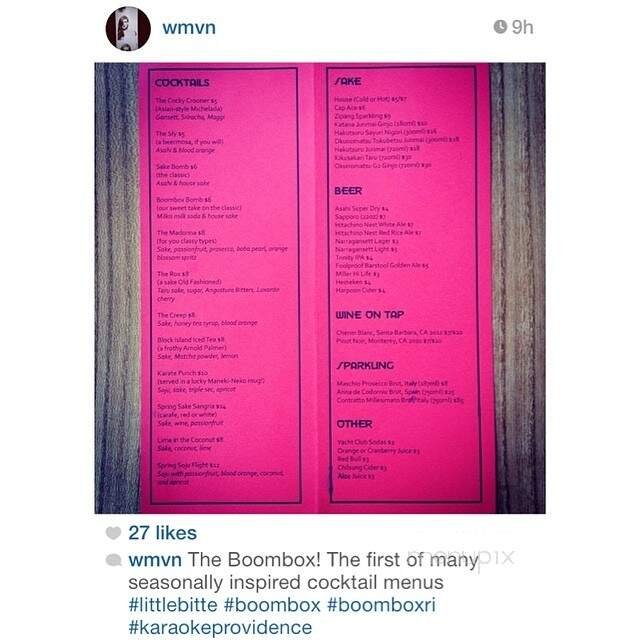 wmvn
9h
COCKTAILS
The Cocky Crooner $5
(Asian-style Michelada)
Gansett, Sriracha, Maggi
The Sly $5
(a beermosa, if you will)
Asahi & blood orange
Sake Bomb $6
(the classic)
Asahi & house sake
Boombox Bomb $6
(our sweet take on the classic)
Milkis milk soda & house sake
The Madonna $8
(for you classy types)
Sake, passionfruit, prosecco, boba pearl, orange
blossom spritz
The Rox $8
(a sake Old Fashioned)
Taru sake, sugar, Angostura Bitters, Luxardo
cherry
The Creep $8
Sake, honey tea syrup, blood orange
Block Island Iced Tea $8
(a frothy Arnold Palmer)
Sake, Matcha powder, lemon
Karate Punch $10
(served in a lucky Maneki-Neko mug!)
Soju, sake, triple sec, apricot
Spring Sake Sangria $24
(carafe, red or white)
Sake, wine, passionfruit
Lime in the Coconut $8
Sake, coconut, lime
Spring Soju Flight $12
Soju with passionfruit, blood orange, coconut,
and apricot
SAKE
House (Cold or Hot) $5/$7
Cap Ace $6
Zipang Sparkling $9
Katana Junmai Ginjo (180ml) $10
Hakutsuru Sayuri Nigori (300ml)
Okunomatsu Tokubetsu Junmai (300ml) $18
Hakutsuru Junmai (720ml)
Kikusakari Taru (720ml) $30
Okunomatsu Ginjo (720ml)
BEER
Asahi Super Dry $4
Sapporo (22oz) $7
Hitachino Nest White Ale $7
Hitachino Nest Red Rice Ale $7
Narragansett Lager $3
Narragansett Light $3
Trinity IPA $4
Foolproof Barstool Golden Ale $5
Miller Hi Life $3
Heineken $4
Harpoon Cider $4
WINE ON TAP
Chenin Blanc, Santa Barbara, CA 2012 $7/$20
Pinot Noir, Monterey, CA $7/$20
SPARKLING
Maschio Prosecco Brut, Italy (187ml) $8
Anna de Codorniu Brut, Spain (750ml) $25
Contratto Millesimato Brut, Italy (750ml)
OTHER
Yacht Club Sodas $3
Orange or Cranberry Juice $3
Red Bull $3
Chilsung Cider $3
Aloe Juice $3
27 likes
wmvn The Boombox! The first of many
seasonally inspired cocktail menus
#littlebitte #boombox #boomboxri
#karaokeprovidence
menupix